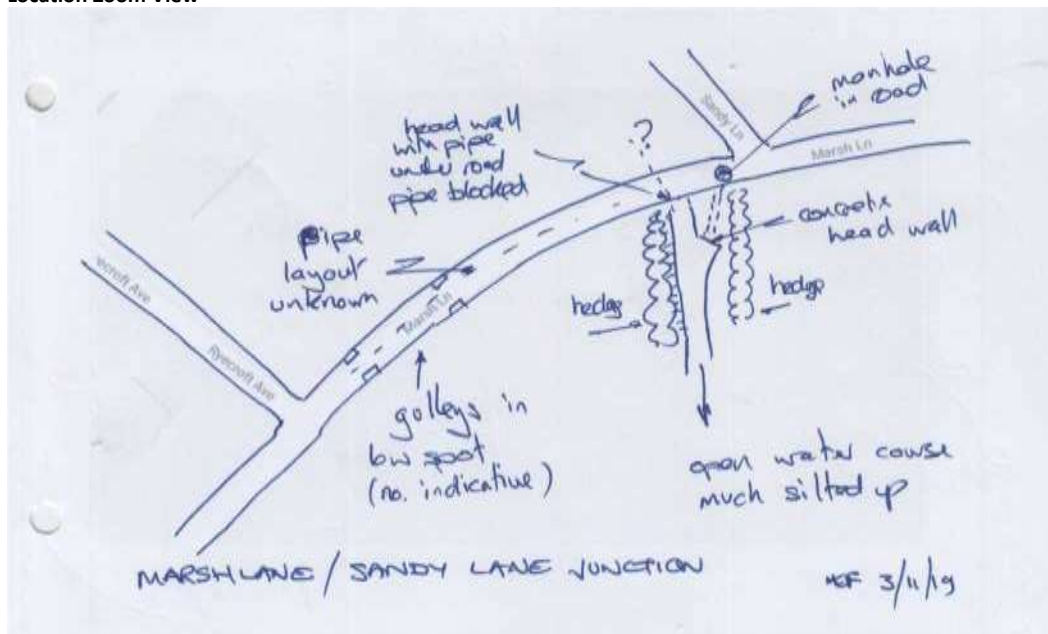 Location Zoom View
manhole
in road
Sandy Ln
Marsh Ln
head wall
with pipe
under road
pipe blocked
?
concrete
head wall
pipe
layout
unknown
hedge
hedge
ecroft Ave
Ryecroft Ave
Marsh Ln
gulleys in
low spot
(no. indicative)
open water course
much silted up
MARSH LANE / SANDY LANE JUNCTION
3/11/19